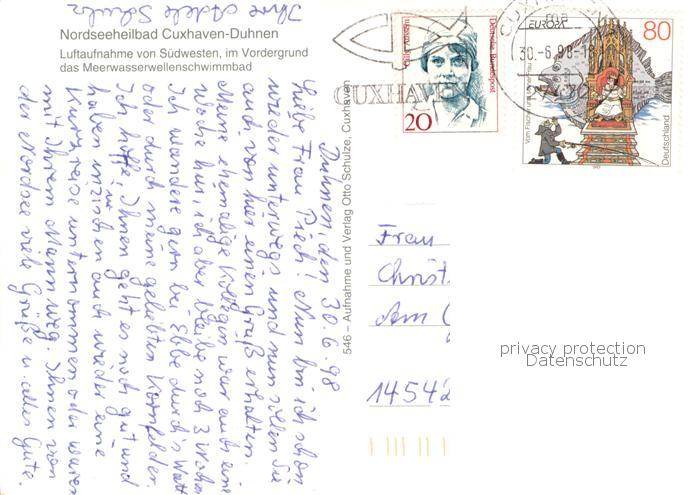 Ihre Adele Schulz
Nordseeheilbad Cuxhaven-Duhnen
Luftaufnahme von Südwesten, im Vordergrund
das Meerwasserwellenschwimmbad
Duhnen, den 30.6.98
Liebe Frau Piech! Nun bin ich schon
wieder unterwegs und nun sollen Sie
auch von hier einen Gruß erhalten.
Meine ehemalige Kollegin war auch eine
Woche hier, ich aber bleibe noch 3 Wochen
Ich wandere gern bei Ebbe durch's Watt
oder durch meine geliebten Kornfelder.
Ich hoffe, Ihnen geht es noch gut und
haben inzwischen auch wieder eine
Kurzreise unternommen oder waren
mit Ihrem Mann weg. Ihnen von
der Nordsee viele Grüße u. alles Gute.
546 – Aufnahme und Verlag Otto Schulze, Cuxhaven
CUXHAVEN
Deutsche Bundespost
20
CUXHAVEN
30.-6.98-18
27472
EUROPA
80
Deutschland
Frau
Christ
Am
14542
privacy protection
Datenschutz